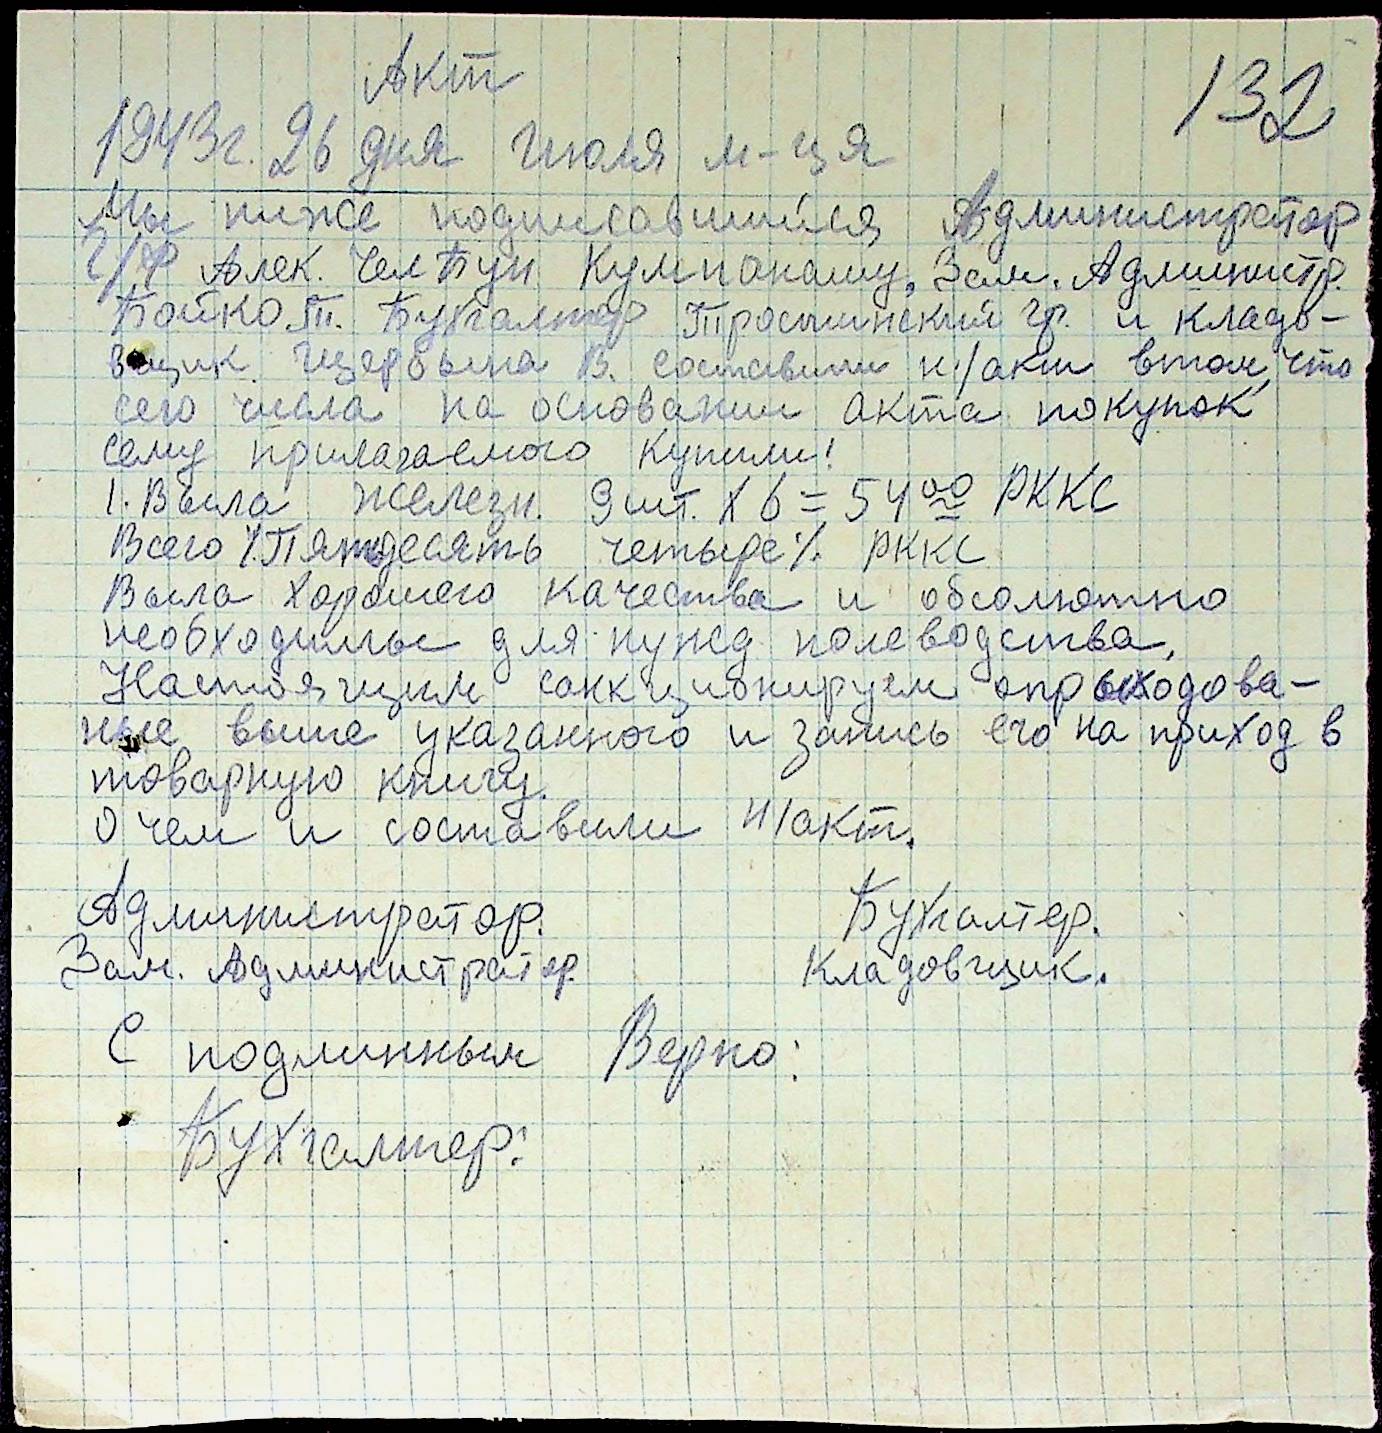 Акт
132
1943г. 26 дня Июля м-ця
Мы ниже подписавшийся Администратор
Г/Ф Алек. Чел Бун Кумпонашу, Зам. Администр.
Бойко П. Бухгалтер Тросминский Гр. и кладо-
вщик Щербына В. составили н/акт втом, что
сего числа на основании акта покупок
сему прилагаемого купили!
1. Выла железн. 9 шт. х 6 = 54 00 РККС
Всего % Пятьдесять четыре % РККС
Выла хорошего качества и обсолютно
необходимы для нужд полеводства,
Настоящим санкционируем опрыходова-
ные выше указанного и запись его на приход в
товарную книгу.
О чем и составили н/акт.
Администратор. Бухгалтер.
Зам. Администратор. Кладовщик.
С подлинным Верно:
Бухгалтер: